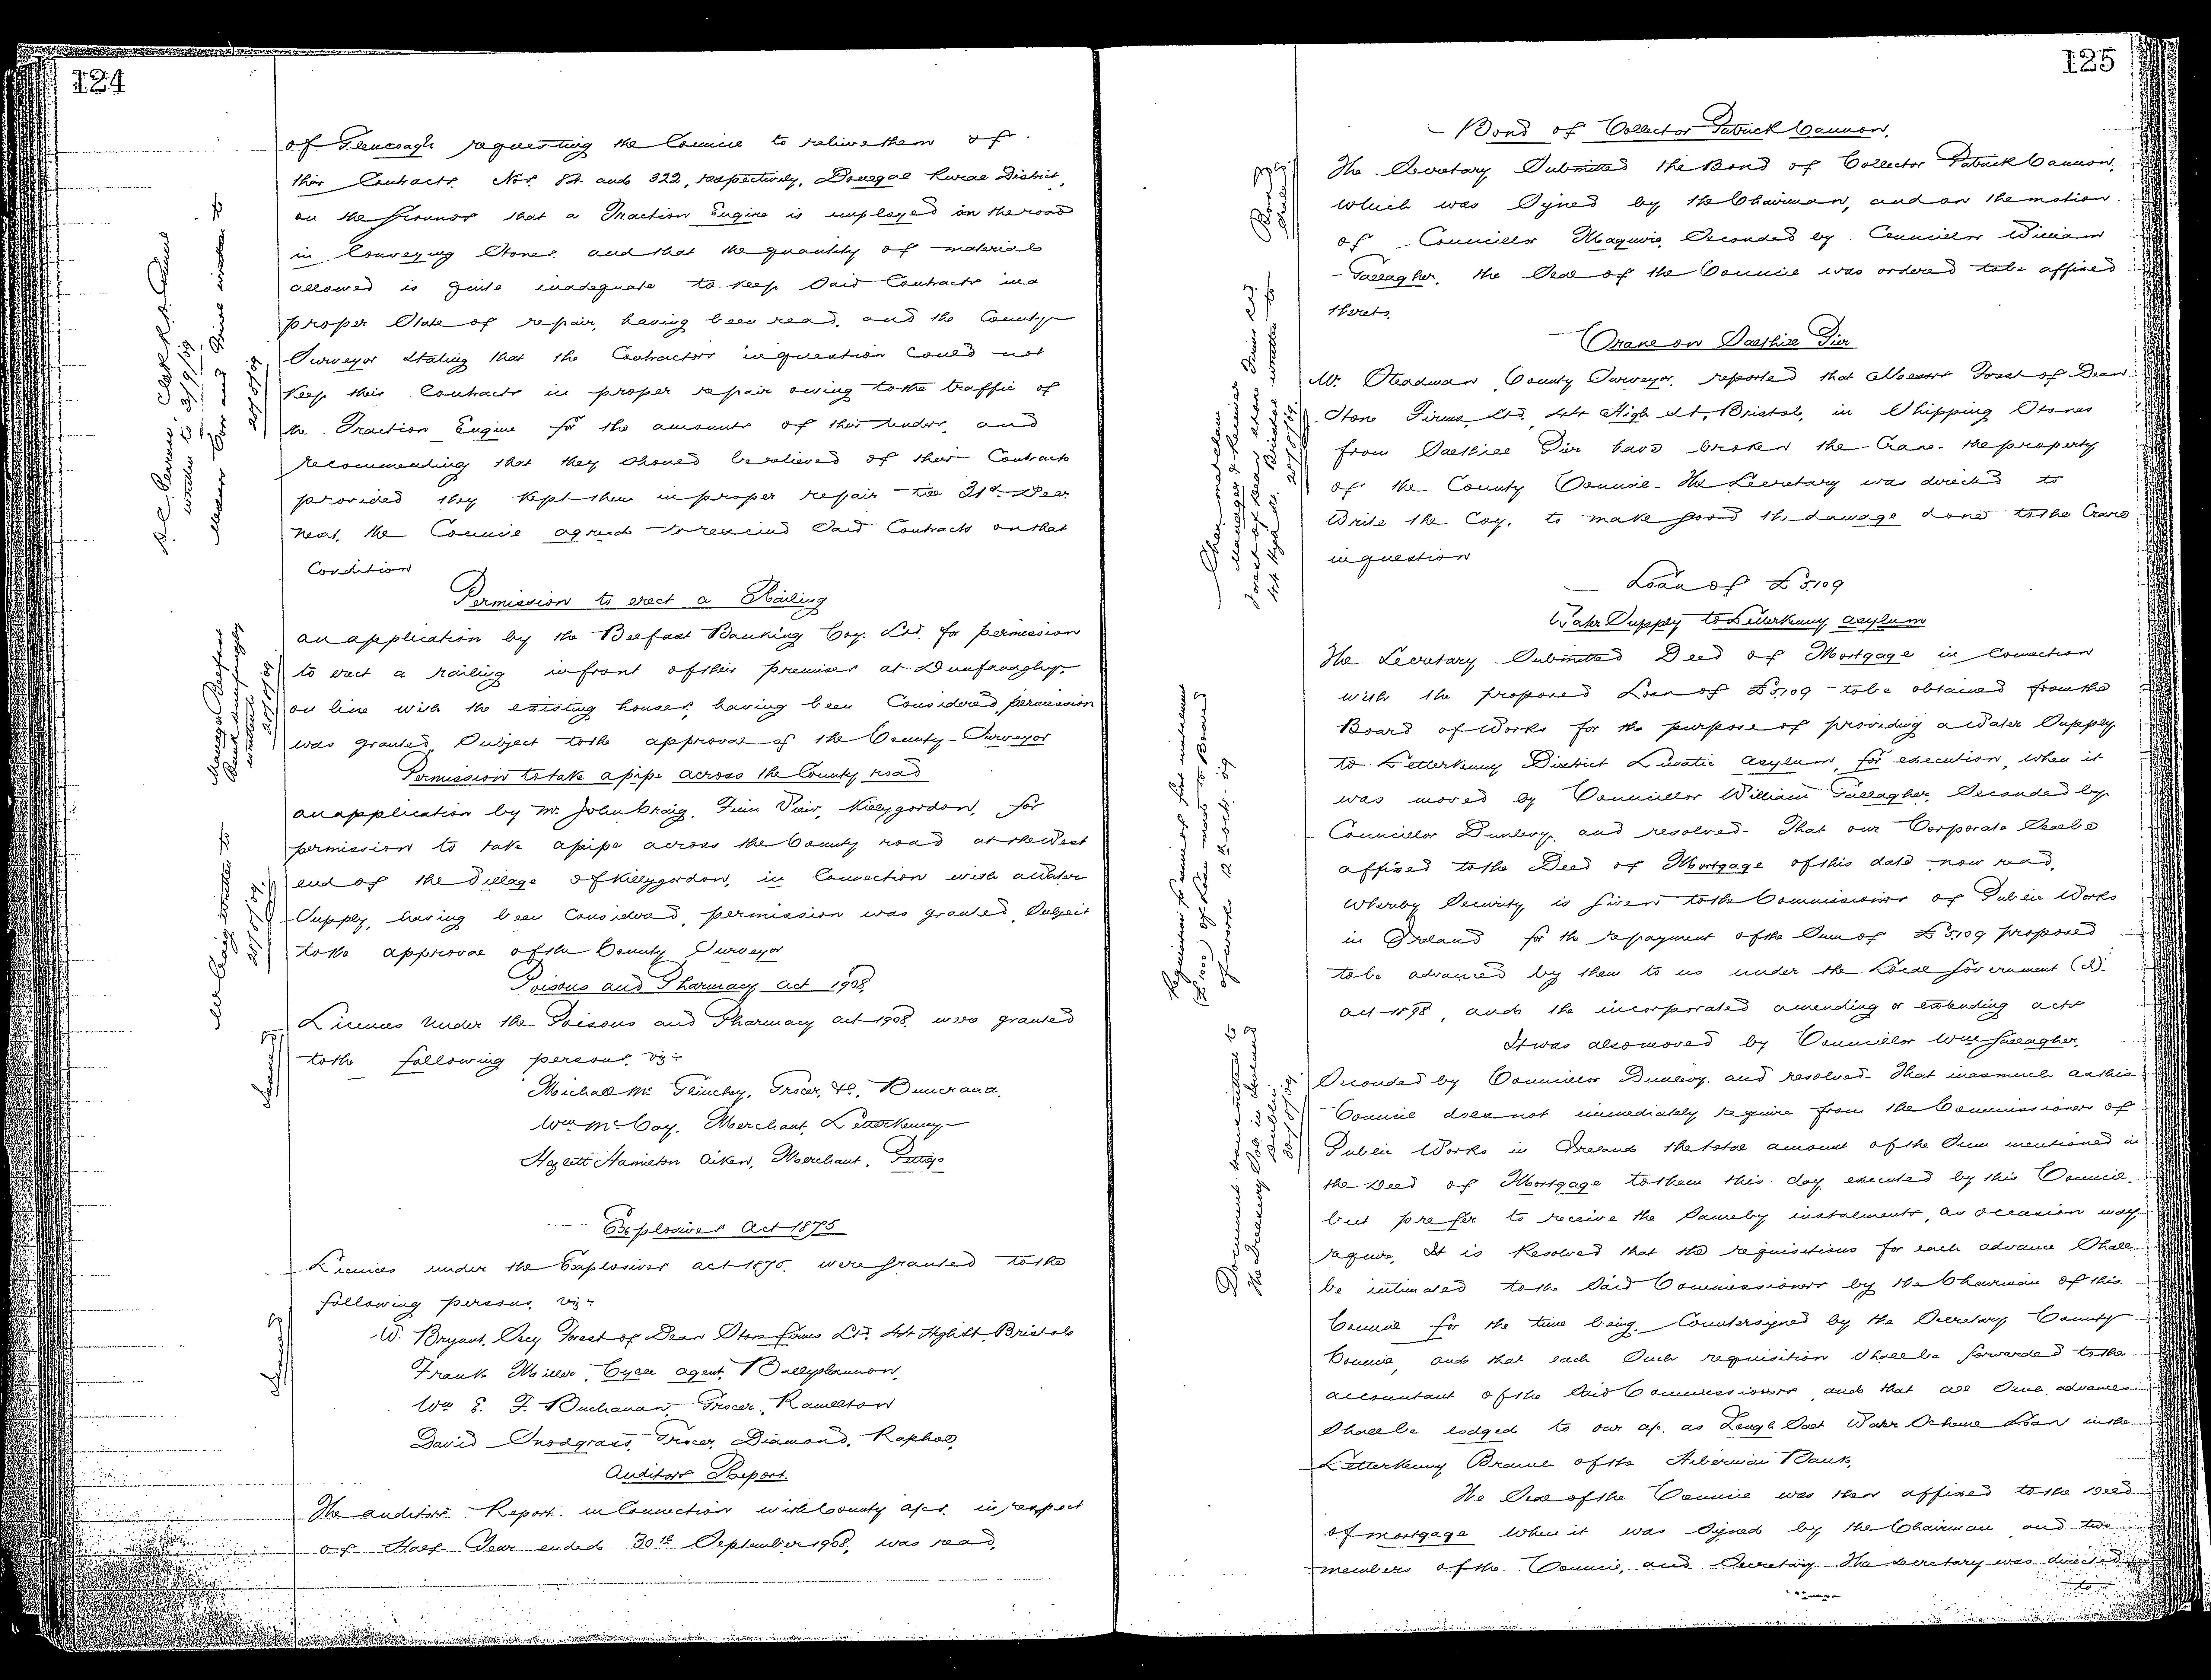 124
of Glencoagh requesting the Council to relieve them of
their Contracts Nos. 84 and 322, respectively, Donegal Rural District,
on the grounds that a Traction Engine is employed on the road
in Conveying Stones and that the quantity of material
allowed is quite inadequate to keep said Contracts in a
proper State of repair, having been read, and the County
Surveyor stating that the Contractors in question could not
keep their Contracts in proper repair owing to the traffic of
the Traction Engine for the amounts of their tenders, and
recommending that they should be relieved of their Contracts
provided they kept them in proper repair till 31st Decr.
next, the Council agreed to rescind said Contracts on that
Condition
Permission to erect a Railing
an application by the Belfast Banking Coy. Ltd. for permission
to erect a railing in front of their premises at Dunfanaghy
on line with the existing houses, having been Considered, permission
was granted, Subject to the approval of the County Surveyor
Permission to take a pipe across the County road
an application by Mr. John Craig, Finn View, Killygordon, for
permission to take a pipe across the County road at the West
end of the Village of Killygordon, in Connection with a Water
Supply, having been Considered, permission was granted, Subject
to the approval of the County Surveyor
Poisons and Pharmacy act 1908
Licences under the Poisons and Pharmacy act 1908, were granted
to the following persons, viz:-
Michael Mc Glinchey, Grocer, &c, Buncrana,
Wm McCay, Merchant, Letterkenny
Hazlett Hamilton Aiken, Merchant, Pettigo
Explosives Act 1875
Licences under the Explosives act 1875, were granted to the
following persons, viz:-
W. Bryant, Secy Forest of Dean Stone firms Ltd. 44 High St. Bristol
Frank Miller, Cycle agent, Ballyshannon,
Wm E. F. Buchanan, Grocer, Ramelton
David Snodgrass, Grocer, Diamond, Raphoe,
Auditors Report.
The auditors Report in Connection with County a/cs. in respect
of Half Year ended 30th September 1908, was read,
written to 3/9/09
written to
20/8/09
Manager Belfast
Bank Dunfanaghy
written to
20/8/09
Mr Craig written to
20/8/09
125
Bond of Collector Patrick Cannon.
The Secretary Submitted the Bond of Collector Patrick Cannon,
which was Signed by the Chairman, and on the motion
of Councillor Maguire, Seconded by Councillor William
Gallagher, the Seal of the Council was ordered to be affixed
thereto.
Crane on Saethill Pier
Mr. Steadman, County Surveyor, reported that Messrs Forest of Dean
Stone Firms, Ltd., 44 High St, Bristol, in Shipping Stones
from Saethill Pier have broken the Crane the property
of the County Council. The Secretary was directed to
write the Coy. to make good the damage done to the Crane
in question
Loan of £5,109
Water Supply to Letterkenny asylum
The Secretary Submitted Deed of Mortgage in Connection
with the proposed Loan of £5,109 to be obtained from the
Board of Works for the purpose of providing a Water Supply
to Letterkenny District Lunatic asylum, for execution, when it
was moved by Councillor William Gallagher, Seconded by
Councillor Dunlevy, and resolved- That our Corporate Seal be
affixed to the Deed of Mortgage of this date now read,
whereby Security is given to the Commissioners of Public Works
in Ireland for the repayment of the Sum of £5,109 proposed
to be advanced by them to us under the Local Government (I)
act 1898, and the incorporated amending or extending acts
It was also moved by Councillor Wm Gallagher,
Seconded by Councillor Dunlevy, and resolved- That inasmuch as this
Council does not immediately require from the Commissioners of
Public Works in Ireland the total amount of the Sum mentioned in
the Deed of Mortgage to them this day executed by this Council,
but prefer to receive the Same by instalments, as occasion may
require, It is Resolved that the requisitions for each advance Shall
be intimated to the Said Commissioners by the Chairman of this
Council for the time being, Countersigned by the Secretary County
Council, and that each Such requisition Shall be forwarded to the
accountant of the Said Commissioners and that all Such advances
Shall be lodged to our a/c. as Lough Salt Water Scheme Loan in the
Letterkenny Branch of the Hibernian Bank.
The Seal of the Council was then affixed to the Deed
of mortgage when it was Signed by the Chairman and two
members of the Council, and Secretary. The Secretary was directed
to
Requisition for
£1000 of Loan made to Board
of works 12 Oct. 09
Documents transmitted to
The Treasury Sol. in Ireland
Dublin
30/8/09
20/8/09